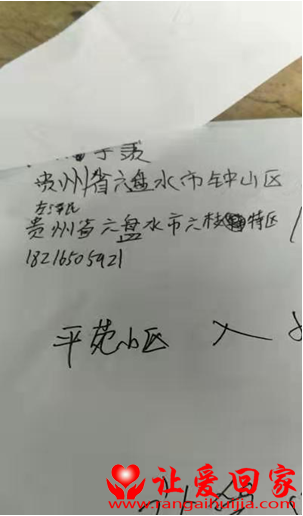 贵州省六盘水市钟山区
贵州省六盘水市六枝特区
18216505921
平苑小区 入
让爱回家
www.rangaihuijia.com